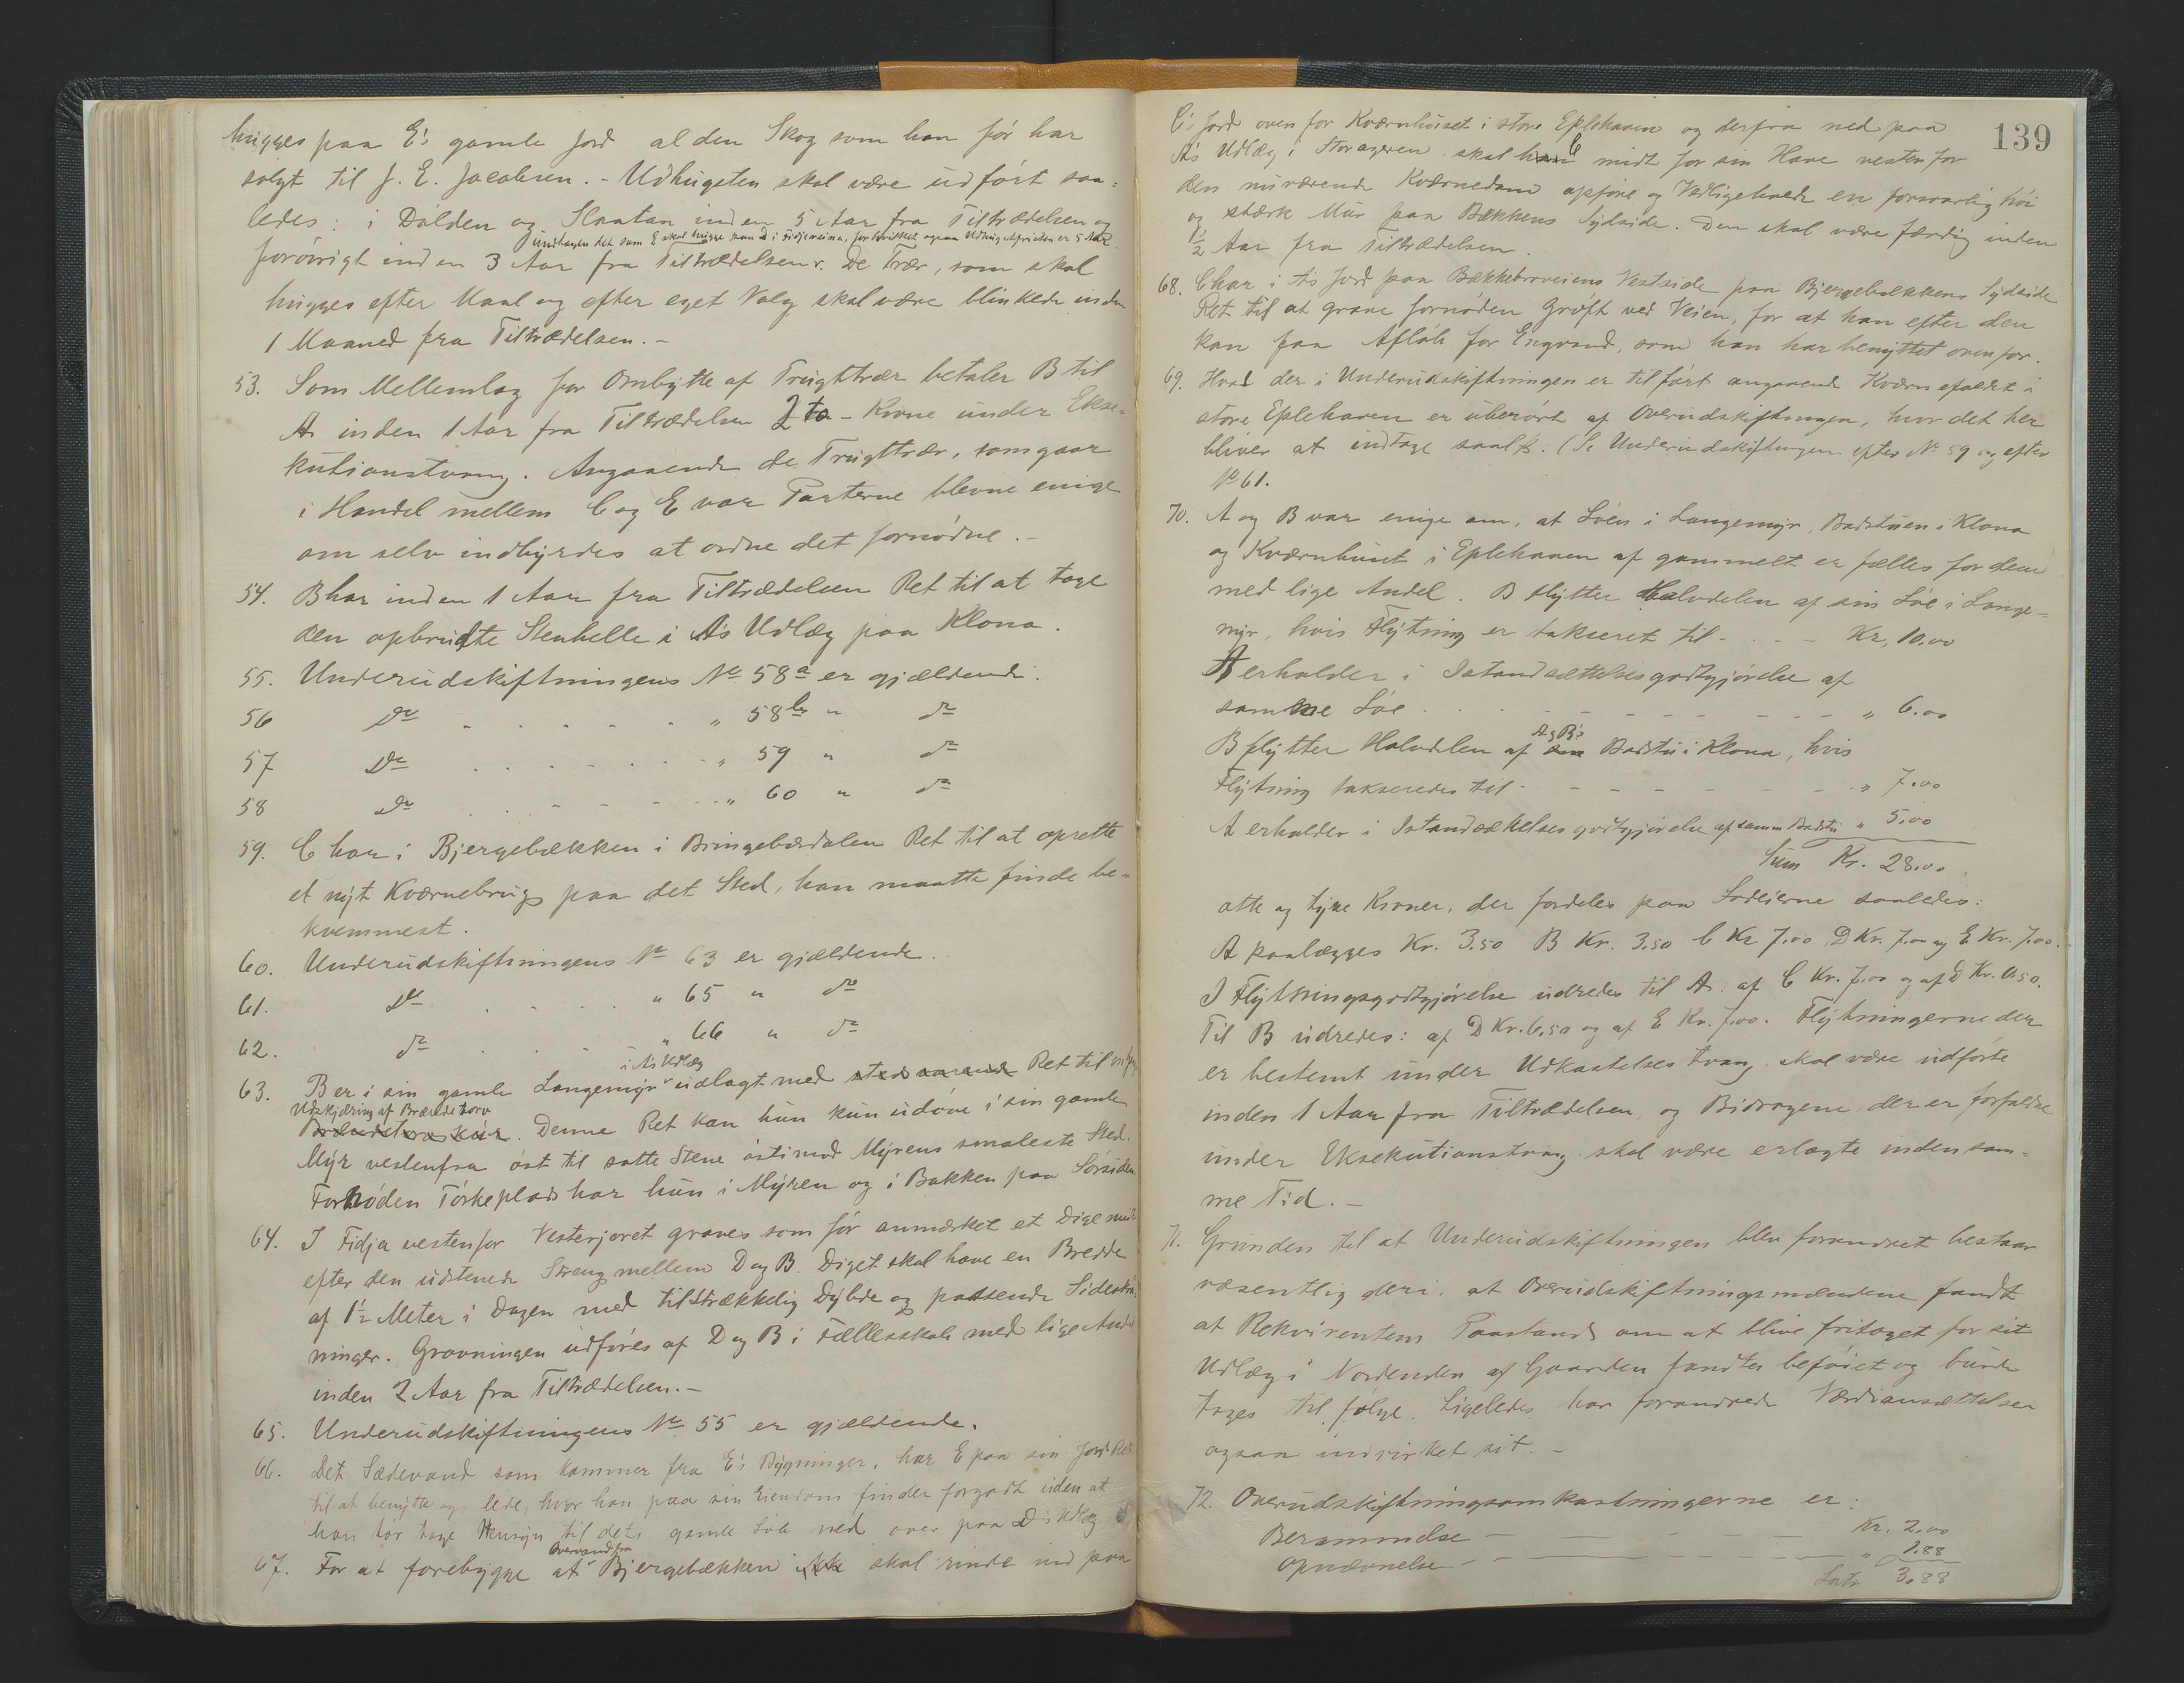 hugges paa E's gamle Jord al den Skog som han før har
solgt til J. E. Jacobsen. - Udhugsten skal være udført saa-
ledes: i Dalden og Slaatan inden 5 Aar fra Tiltrædelsen og
undtagen det som E skal hugge hand i Fidjemina, for hvilket ogsaa Udhugstfristen er 5 Aar.
forøvrigt inden 3 Aar fra Tiltrædelsen v. De Trær, som skal
hugges efter Maal og efter eget Valg skal være blinkede inden
1 Maaned fra Tiltrædelsen. -
53. Som Mellemlag for Ombytte af Frugttrær betaler B til
A inden 1 Aar fra Tiltrædelsen 2 to - Krone under Ekse-
kutionstvang. Angaaende de Frugttrær, som gaar
i Handel mellem C og E var Parterne blevne enige
om selv indbyrdes at ordne det fornødne. -
54. B har inden 1 Aar fra Tiltrædelsen Ret til at tage
den opbrudte Stenhelle i A's Udlæg paa Klona.
55. Underudskiftningens No 58a er gjældende.
56 Do . . . . . " 58b " do
57 Do . . . . . . " 59 " do
58 Do . . . . . " 60 " do
59. C har i Bjergebækken i Bringebærdalen Ret til at oprette
et nyt Kværnebrug paa det Sted, han maatte finde be-
kvemmest.
60. Underudskiftningens No 63 er gjældende.
61. Do . . . " 65 " do
62. do . . . " 66 " do
i A's Udlæg
63. B er i sin gamle Langemyr udlagt med stedsvarende Ret til
Udskjæring af Brændetorv
Brændetorvskur. Denne Ret kan hun kun udøve i sin gamle
Myr vestenfra øst til satte Stene østimod Myrens smaleste Sted.
Fornøden Tørkeplads har hun i Myren og i Bakken paa Sørsiden
64. I Fidja vestenfor Vesterjoret graves som før anmærket et Dige midt
efter den udstenede Streng mellem D og B. Diget skal have en Bredde
af 1½ Meter i Dagen med tilstrækkelig Dybde og passende Sideskrå-
ninger. Gravningen udføres af D og B i Fællesskab med lige Andel
inden 2 Aar fra Tiltrædelsen. -
65. Underudskiftningens No 55 er gjældende.
66. Det Sædevand som kommer fra E's Bygninger, har E paa sin Jord Ret
til at benytte og lede, hvor han paa sin Eiendom finder forgodt uden at
han tør tage Hensyn til dets gamle Løb ned over paa D's Udlæg.
Overvand fra
67. For at forebygge at Bjergebækken ikke skal rinde ind paa
139
C's Jord oven for Kværnhuset i store Eplehaven og derfra ned paa
A's Udlæg i Storageren skal han C midt for sin Have vestenfor
den nuværende Kværnedam opføre og Vedligeholde en forsvarlig høi
og stærk Mur paa Bækkens Sydside. Den skal være færdig inden
½ Aar fra Tiltrædelsen.
68. C har i A's Jord paa Bækkebroveiens Vestside paa Bjergebækkens Sydside
Ret til at grave fornøden Grøft ved Veien, for at han efter den
kan faa Afløb for Engvand, som han har benyttet ovenfor.
69. Hvad der i Underudskiftningen er tilført angaaende Kværnefaldet i
store Eplehaven er uberørt af Overudskiftningen, hvor det her
bliver at indtage saal. (Se Underudskiftningen efter No 59 og efter
No 61.
70. A og B var enige om, at Løen i Langemyr, Badstuen i Klona
og Kværnhuset i Eplehaven af gammelt er fælles for dem
med lige Andel. B flytter Halvdelen af sin Løe i Lange-
myr, hvis Flytning er takseret til - . . - Kr. 10.00
A erholder i Istandsættelsesgodtgjørelse af
samme Løe . . . - - - - - - - - " 6.00
A og B's
B flytter Halvdelen af den Badstu i Klona, hvis
Flytning takseredes til - - - - - - - - " 7.00
A erholder i Istandsættelsesgodtgjørelse af samme Badstu " 5.00
Sum Kr. 28.00
otte og tyve Kroner, der fordeles paa Lodeierne saaledes:
A paalægges Kr. 3.50 B Kr. 3.50 C Kr 7.00 D Kr. 7.00 og E Kr. 7.00.
I Flytningsgodtgjørelse udredes til A. af C Kr. 7.00 og af D Kr. 0.50.
Til B udredes: af D Kr. 6.50 og af E Kr. 7.00. Flytningerne der
er bestemt under Udkastelses tvang skal være udførte
inden 1 Aar fra Tiltrædelsen, og Bidragene der er forfaldne
under Eksekutionstvang skal være erlagte inden sam-
me Tid. -
71. Grunden til at Underudskiftningen blev forandret bestaar
væsentlig deri, at Overudskiftningsmændene fandt
at Rekvirentens Paastand om at blive fritaget for sit
Udlæg i Nordenden af Gaarden fandtes beføiet og burde
tages til følge. Ligeledes har forandrede Værdiansættelser
ogsaa indvirket sit. -
72. Overudskiftningsomkostningerne er:
Berammelse - - - - Kr. 2.00
Opnævnelse - - - - " 1.88
Lats 3.88